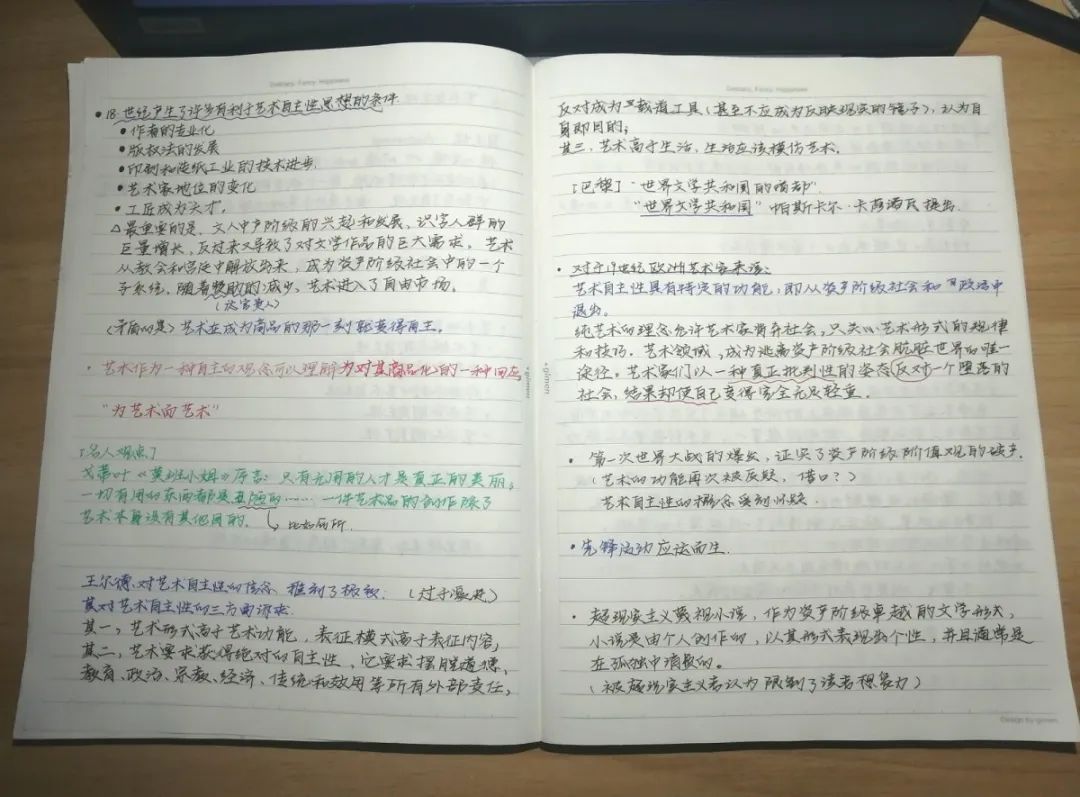 Ordinary, Fancy, Happiness
• 18世纪产生了许多有利于艺术自主性思想的条件
• 作者的专业化
• 版权法的发展
• 印刷和造纸工业的技术进步.
• 艺术家地位的变化
• 工匠成为天才.
△最重要的是. 文人中产阶级的兴起和发展. 识字人群的
巨量增长, 反过来又导致了对文学作品的巨大需求. 艺术
从教会和宫廷中解放出来, 成为资产阶级社会中的一个
子系统. 随着赞助的减少, 艺术进入了自由市场.
<矛盾的是> 艺术在成为商品的那一刻 获得自主.
• 艺术作为一种自主的观念可以理解为对其商品化的一种回应
"为艺术而艺术"
[名人观点]
戈蒂叶《莫班小姐》序言: 只有无用的人才是真正的美丽。
一切有用的东西都是丑陋的…… 一件艺术品的创作除了
艺术本身没有其他目的.
比如厕所.
王尔德. 对艺术自主性的信念 推到了极致. (过于激进)
其对艺术自主性的三方面诉求.
其一, 艺术形式高于艺术功能, 表征模式高于表征内容,
其二, 艺术要求获得绝对的自主性, 它要求摆脱道德,
教育、政治、宗教、经济、传统和效用等所有外部责任,
Ordinary, Fancy, Happiness
反对成为载道工具(甚至不应成为反映现实的镜子), 认为自
身即目的;
其三, 艺术高于生活, 生活应该模仿艺术.
[巴黎] "世界文学共和国的首都".
"世界文学共和国" 帕斯卡尔·卡萨诺瓦提出.
• 对于19世纪欧洲艺术家来说:
艺术自主性具有特定的功能, 即从资产阶级社会和政治中
退出.
纯艺术的理念允许艺术家背弃社会, 只关心艺术形式的规律
和技巧. 艺术领域, 成为逃离资产阶级社会肮脏世界的唯一
途径. 艺术家们以一种真正批判性的姿态反对一个堕落的
社会, 结果却使自己变得完全无足轻重.
• 第一次世界大战的爆发, 证实了资产阶级价值观的破产.
(艺术的功能再次被质疑, 借口?)
艺术自主性的概念受到怀疑.
• 先锋运动应运而生.
• 超现实主义蔑视小说, 作为资产阶级卓越的文学形式,
小说是由个人创作的, 以其形式表现出个性, 并且通常是
在孤独中消极的.
(被超现实主义者认为限制了读者想象力)
•gimon
•gimon
Design by gimon